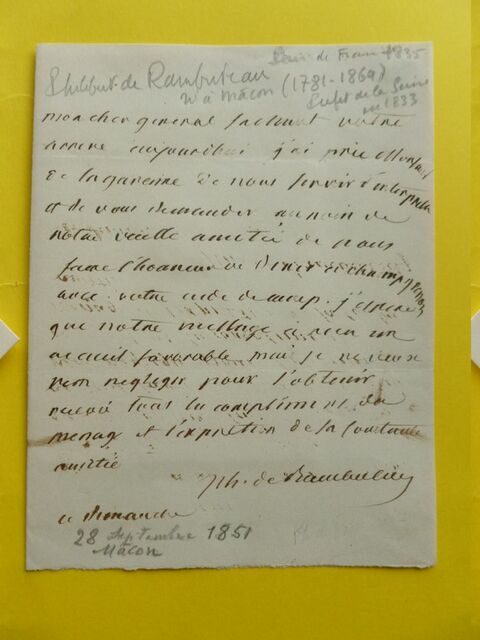 Pair de France 1835
Philibert de Rambuteau (1781-1869)
né à Mâcon
Préfet de la Seine
en 1833
mon cher general sachant votre
arrivée aujourdhui j'ai prié
de la garenne de nous servir d'interprete
et de vous demander au nom de
notre vieille amitié de nous
faire l'honneur de diner a champgrenon
avec votre aide de camp. j'espere
que notre message a recu un
accueil favorable mai je ne veux
rien negliger pour l'obtenir
recevez tous les compliments du
menage et l'expression de sa constante
amitié
Ph. de Rambuteau
ce dimanche
28 septembre 1851
Mâcon